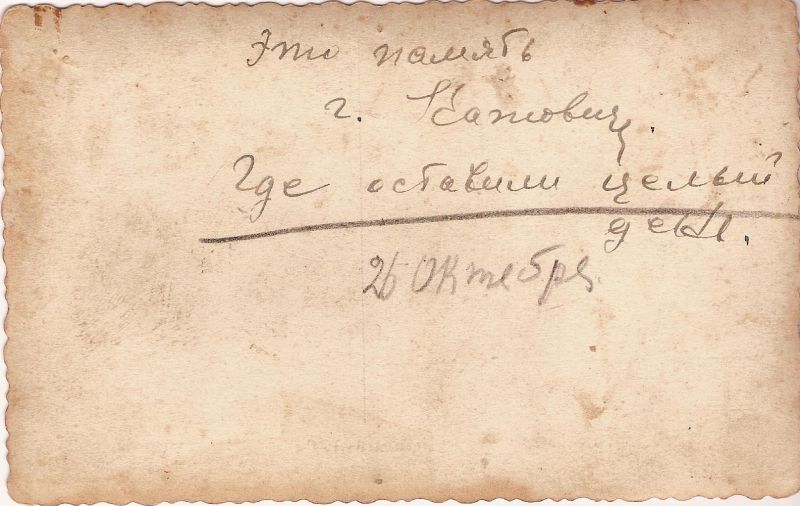 Это память
г. Катовиц.
Где оставили целый
день.
26 Октября.